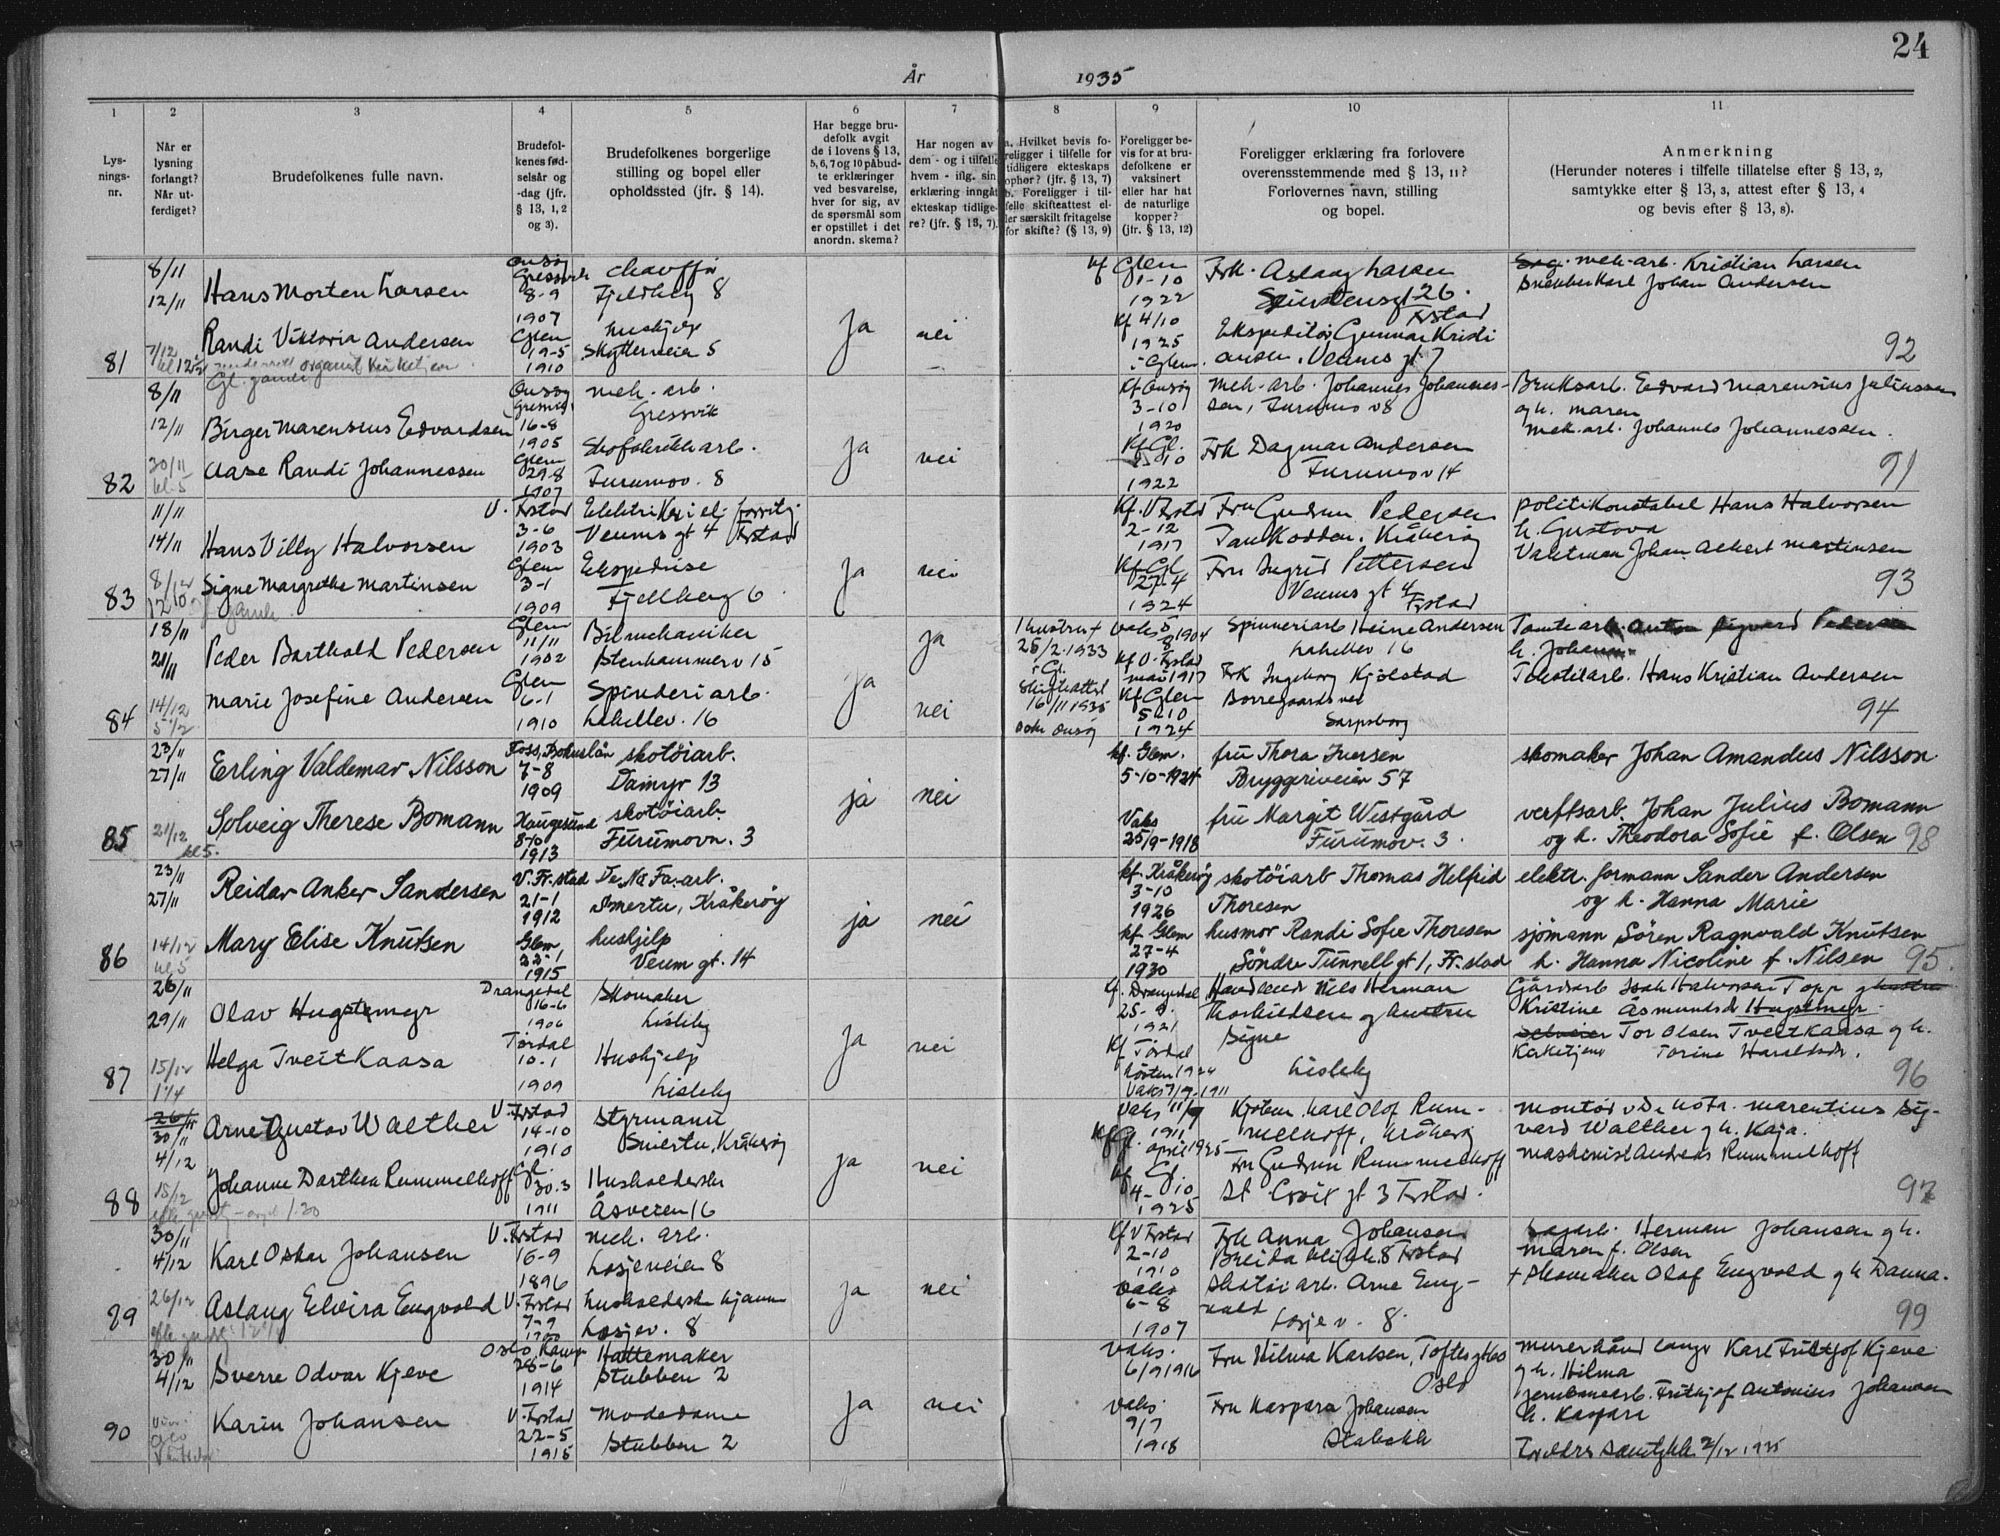 24
År 1935
1 2 3 4 5 6 7 8 9 10 11
Lys-
nings-
nr.
Når er
lysning
forlangt?
Når ut-
ferdiget?
Brudefolkenes fulle navn.
Brudefol-
kenes fød-
selsår og
-dag (jfr.
§ 13, 1, 2
og 3).
Brudefolkenes borgerlige
stilling og bopel eller
opholdssted (jfr. § 14).
Har begge bru-
defolk avgit
de i lovens § 13,
5, 6, 7 og 10 påbud-
te erklæringer
ved besvarelse,
hver for sig, av
de spørsmål som
er opstillet i det
anordn. skema?
Har nogen av
dem - og i tilfelle
hvem - iflg. sin
erklæring inngått
ekteskap tidlige-
re? (jfr. § 13, 7).
a. Hvilket bevis fo-
religger i tilfelle for
tidligere ekteskaps
ophør? (jfr. § 13, 7)
b. Foreligger i til-
felle skifteattest el-
ler særskilt fritagelse
for skifte? (§ 13, 9)
Foreligger be-
vis for at bru-
defolkene er
vaksinert
eller har hat
de naturlige
kopper?
(jfr. § 13, 12)
Foreligger erklæring fra forlovere
overensstemmende med § 13, 11?
Forlovernes navn, stilling
og bopel.
Anmerkning
(Herunder noteres i tilfelle tillatelse efter § 13, 2,
samtykke efter § 13, 3, attest efter § 13, 4
og bevis efter § 13, 8).
81
8/11
12/11
Hans Morten Larsen
Onsøy
Gressvik
8-9
1907
chauffør
Fjeldberg 8
Randi Viktoria Andersen
Glem
19-5
1910
hushjelp
Skytterveien 5
ja
nei
Kf Glem
1-10
1922
Kf 4/10
1925
i Glem
Frk. Aslaug Larsen
26.
Frstad
Ekspeditør Gunnar Kristi
ansen, Veums gt 7
mek. arb. Kristian Larsen
Snekker Karl Johan Andersen
92
82
8/11
12/11
30/11
kl. 5
Birger Marensius Edvardsen
Onsøy
Gressvik
16-8
1905
mek. arb.
Gressvik
Aase Randi Johannessen
Glem
29-8
1907
Skofabrikkarb.
Furumov. 8
ja
nei
Kf Onsøy
3-10
1920
Kf Gl.
10
1922
mek. arb. Johannes Johannes-
sen, Furumov 8
Frk Dagmar Andersen
Furumov 14
Bruksarb. Edvard Marensius Juliussen
og h. Maren
mek. arb. Johannes Johannessen.
91
83
11/11
14/11
8/12
Hans Villy Halvorsen
V. Frstad
3-6
1903
Elektriker i el. forretn.
Veums gt 4 Frstad
Signe Margrethe Martinsen
Glem
3-1
1909
Ekspedrise
Fjellberg 6
ja
nei
Kf. V Frstad
2-12
1917
Kf Gl
27-4
1924
Fru Gudrun Pedersen
Tankodden. Kråkerøy
Fru Ingrid Pettersen
Veums gt 4
Frstad
politikonstabel Hans Halvorsen
h. Gustava
Vaktman Johan Albert Martinsen
93
84
18/11
21/11
14/12
5 1/2
Peder Barthold Pedersen
Glem
11/11
1902
Bilmekaniker
Stenhammerv 15
Marie Josefine Andersen
Glem
6-1
1910
Spinderiarb.
Lahellev. 16
ja
ja
nei
1 hustru +
25/2. 1933
i Gl.
Skifteattest
16/11 1935
Onsøy
Vaks 5/8 1904
Kf V. Frstad
mai 1917
Kf Glem
5-10
1924
Spinneriarb Heine Andersen
Lahellev 16
Frk Ingeborg Kjølstad
Borregaardsvei
Sarpsborg
Tomtearb. Anton Sigvard Pedersen
h. Johanne
Tekstilarb. Hans Kristian Andersen
94
85
23/11
27/11
21/12
kl 5.
Erling Valdemar Nilsson
Foss, Bohuslän
7-8
1909
skotöiarb.
Damyr 13
Solveig Therese Bomann
Haugesund
8/10
1913
skotöiarb.
Furumovn. 3
ja
nei
kf. Glem.
5-10-1924
Vaks
25/9-1918
fru Thora Iversen
Bryggeriveien 57
fru Margit Westgård
Furumov. 3.
skomaker Johan Amandus Nilsson
verftsarb. Johan Julius Bomann
og h. Theodora Sofie f. Olsen
98
86
23/11
27/11
14/12
kl 5
Reidar Anker Sandersen
V. Fr.stad
21-1
1912
De No Fa. arb.
Smertu, Kråkerøy
Mary Elise Knutsen
Glem
22-1
1915
hushjelp
Veum gt. 14
ja
nei
kf. Kråkerøy
3-10
1926
kf. Glem
27-4
1930
skotöiarb Thomas Helfrid
Thoresen
husmor Randi Sofie Thoresen
Söndre Tunnell gt 1, Fr.stad
elektr. formann Sander Andersen
og h. Hanna Marie
sjömann Sören Ragnvald Knutsen
h. Hanna Nicoline f. Nilsen
95.
87
26/11
29/11
15/12
Olav Hugstmyr
Drangedal
16-6
1906
Skomaker
Lisleby
Helga Tveit Kaasa
Tørdal
10-1
1909
Hushjelp
Lisleby
ja
nei
Kf. Drangedal
1921
Kf Tørdal
høsten 1924
Vaks 7/9-1911
Nils Herman
Thorkildsen og hustru
Signe
Lisleby
Gårdsarb Isak Halvorsen Topp og hustru
Kristine Asmundsd Hugstmyr
Tor Olsen Tveit Kaasa og h.
Torine Haraldsdr.
96
88
26/11
30/11
4/12
15/12
Arne Gustav Walther
V. Frstad
14-10
1910
Styrmann
Smertu, Kråkerøy
Johanne Dorthea Rummelhoff
Gl.
30.3
1911
Husholderske
Åsveien 16
ja
nei
Vaks 11/9
1911
Kf Gl. april 1925
Kf Gl
4-10
1925
Kjøbm. Karl Olof Rum-
melhoff, Kråkerøy
Fru Gudrun Rummelhoff
St. Croix gt 3 Frstad.
montør v De Nofa. Marentius Sig-
vard Walther og h. Kaja.
maskinist Andreas Rummelhoff
97
89
30/11
4/12
26/12
Karl Oskar Johansen
V. Frstad
16-9
1896
mek. arb.
Losjeveien 8
Aslaug Elvira Engvold
V. Frstad
7-9
1900
husholderske hjemme
Losjev. 8
ja
nei
Kf V Frstad
2-10
1910
Vaks
6-8
1907
Frk Anna Johansen
8 Frstad
Skotøiarb. Arne Eng-
vald
Losjev. 8.
Sagarb. Herman Johansen og h.
Maren f. Olsen
+ Skomaker Olaf Engvold og h Danna.
99
90
30/11
4/12
Sverre Odvar Kjeve
Oslo, Kampen
28-6
1914
Hattemaker
Stubben 2
Karin Johansen
V. Frstad
22-5
1915
Modedame
Stubben 2
ja
nei
Vaks.
6/9 1916
Vaks.
9/7
1918
Fru Hilma Karlsen, Toftes gt
Oslo
Fru Kaspara Johansen
Stabekk
murerhåndlanger Karl Fritjof Kjeve
og h. Hilma
Jernbanearb. Frithjof Antonius Johansen
h. Kaspara
Foreldres samtykke 2/12 1935